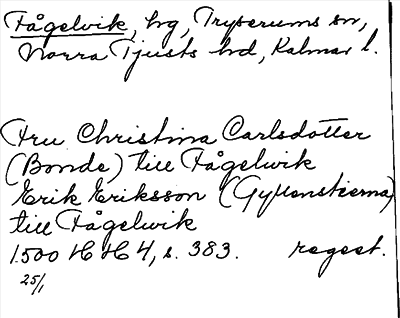 Fågelvik, hg, Tryserums sn,
Norra Tjusts hd, Kalmar l.
Fru Christina Carlsdotter
(Bonde) till Fågelvik
Erik Eriksson (Gyllenstierna)
till Fågelvik
1500 HH 4, s. 383. regest.
25/1